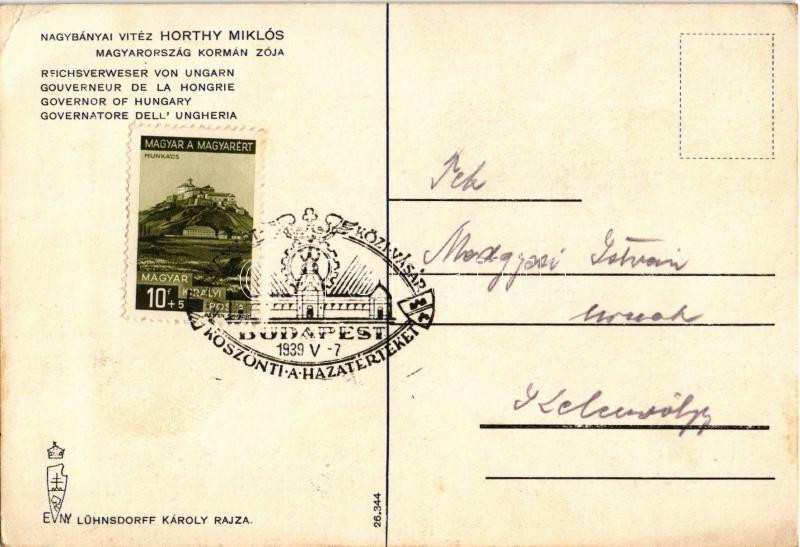 NAGYBÁNYAI VITÉZ HORTHY MIKLÓS
MAGYARORSZÁG KORMÁNZÓJA
REICHSVERWESER VON UNGARN
GOUVERNEUR DE LA HONGRIE
GOVERNOR OF HUNGARY
GOVERNATORE DELL' UNGHERIA
MAGYAR A MAGYARÉRT
MUNKÁCS
MAGYAR
KIRÁLYI
POSTA
10f+5
VÁSÁR
BUDAPEST
1939 V -7
KÖSZÖNTI·A·HAZATÉRTEKET
István
Urnak
EVNY LÜHNSDORFF KÁROLY RAJZA.
26.344